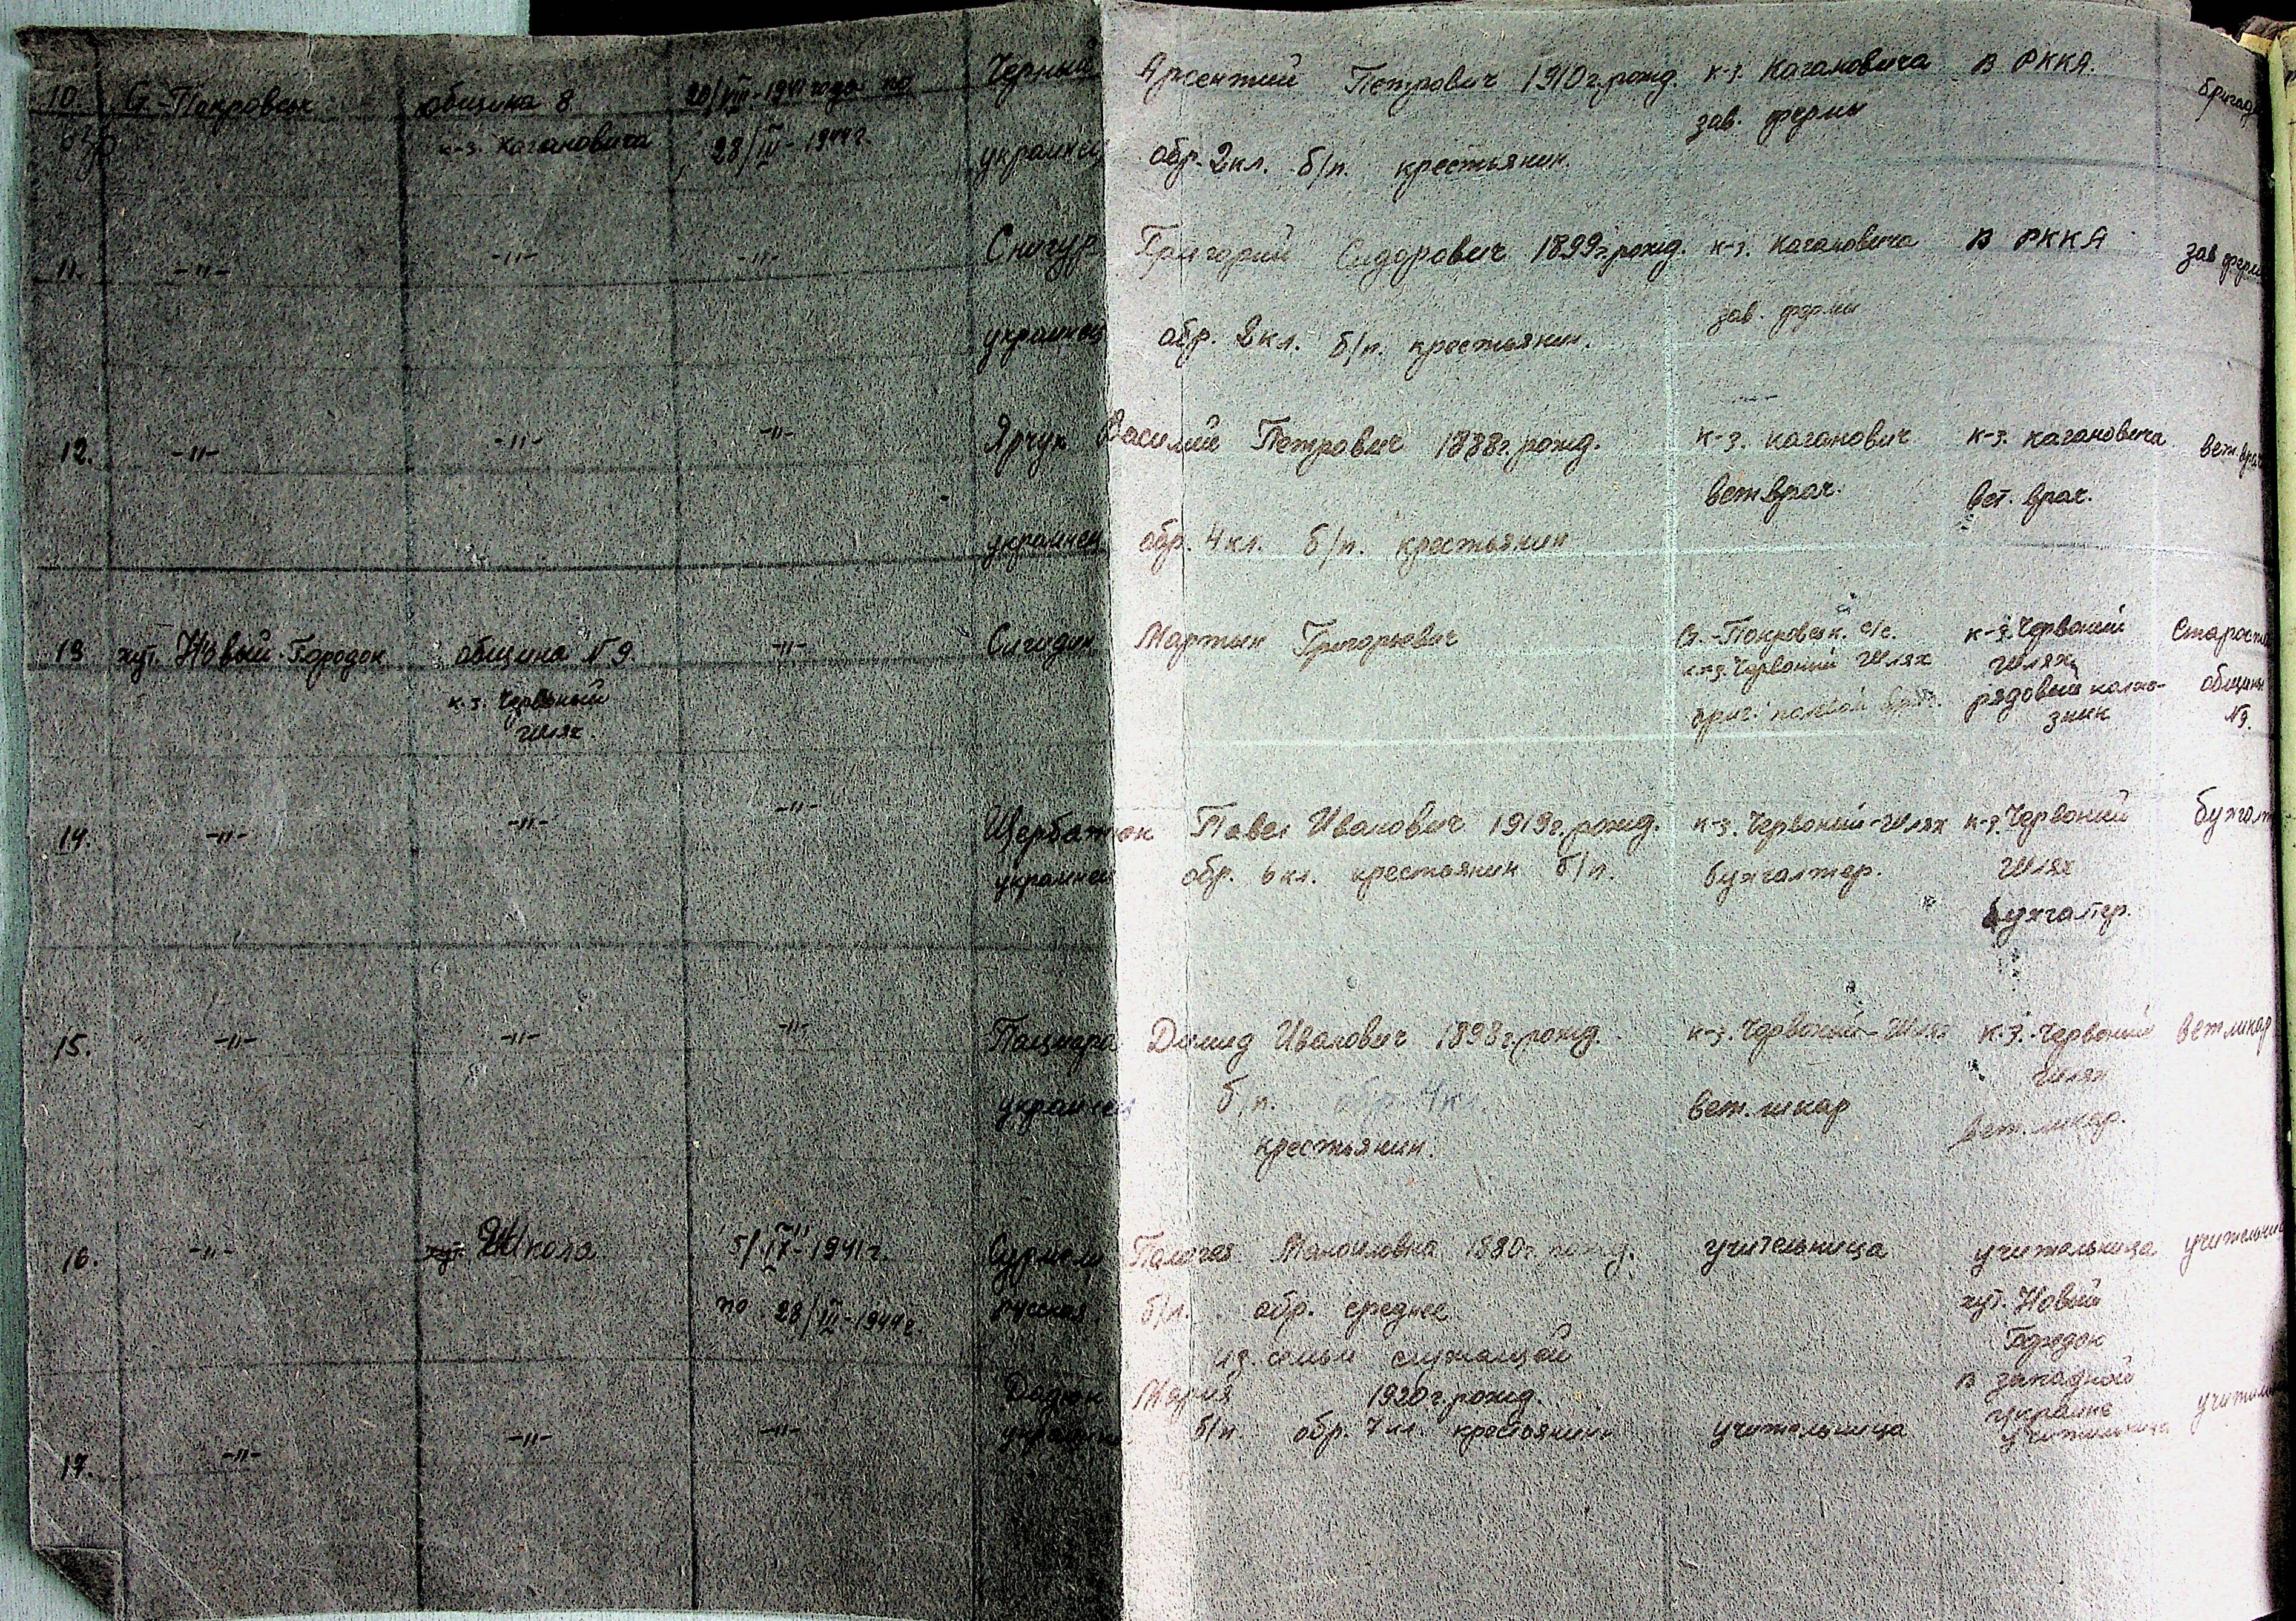 10. Ст.-Покровск община 8 20/VIII-1941 года по Черный Арсентий Петрович 1910 г. рожд. к-з. Кагановича в РККА. бригад
к-з. Кагановича 28/III-1944 г. зав. фермы
украинец обр. 2 кл. б/п. крестьянин.
11. -"- -"- -"- Снигур Григорий Сидорович 1899 г. рожд. к-з. Кагановича в РККА зав. ферм
зав. фермы
украинец обр. 2 кл. б/п. крестьянин.
12. -"- -"- -"- Ярчук Василий Петрович 1888 г. рожд. к-з. Каганович к-з. Кагановича вет. врач
вет врач. вет. врач.
украинец обр. 4 кл. б/п. крестьянин
13 хут. Новый-Городок община №9. -"- Мартын Григорьевич Ст.-Покровск. с/с. к-з. Червоний Староста
к-з. Червоный к-з. Червоний Шлях Шлях общины
Шлях. бриг. полевой бриг. рядовый колхо-
зник №9.
14. -"- -"- -"- Щербатюк Павел Иванович 1919 г. рожд. к-з. Червоний-Шлях к-з. Червоний бухгалт
украинец обр. 6 кл. крестьянин б/п. бухгалтер. Шлях
бухгалтер.
15. -"- -"- -"- Демид Иванович 1898 г. рожд. к-з. Червоний-Шлях к-з. Червоний ветликар
Шлях
украинец б/п. обр. 4 кл. вет. ликар вет. ликар.
крестьянин.
16. -"- Школа 5/IX-1941 г. Палагея Маноиловна 1880 г. рожд. учительница учительница учительни
по 28/III-1944 г. русская б/п. обр. среднее хут. Новый
из семьи служащей Городок
Мария 1920 г. рожд. в западной
17. -"- -"- -"- украинка б/п обр. 7 кл. крестьянин учительница украине учител
учительница